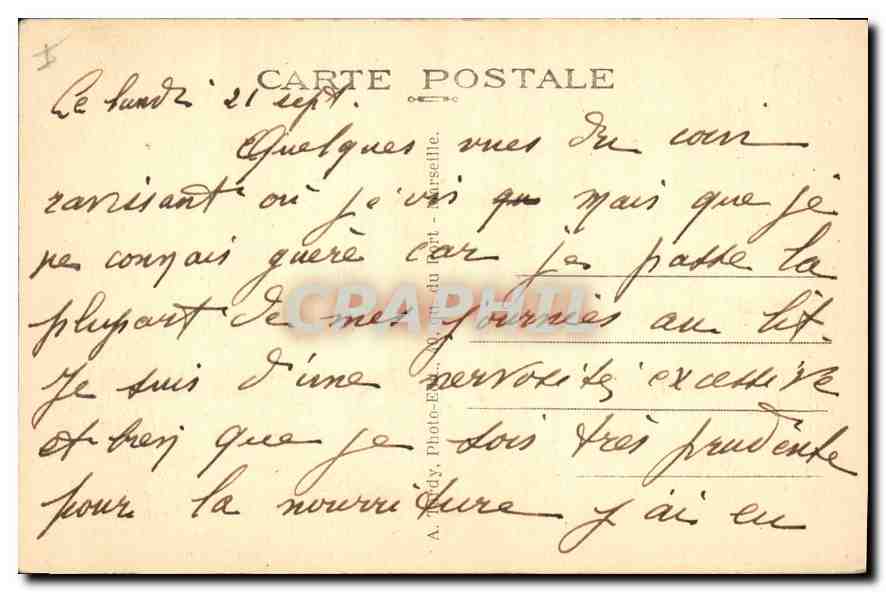 CARTE POSTALE
Le lundi 21 sept.
Quelques vues du coin
ravissant où j'vis mais que je
ne connais guère car je passe la
plupart de mes journées au lit.
Je suis d'une nervosité excessive
et bien que je sois très prudente
pour la nourriture j'ai eu
A. Tardy, Photo-Ed., du Port - Marseille.
CPAPHIL